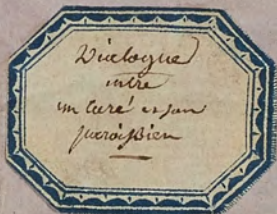 Dialogue
entre
un Curé et son
paroissien